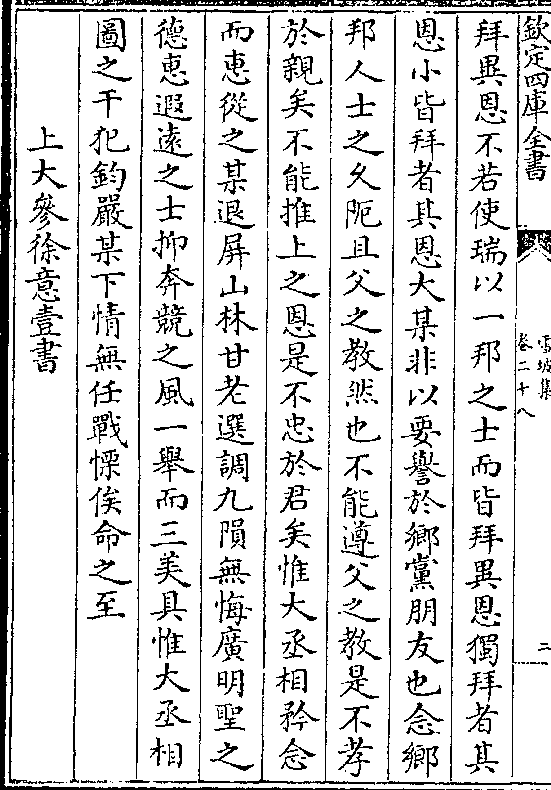 欽定四庫全書
雪坡集
卷二十八
三
拜異恩不若使瑞以一邦之士而皆拜異恩獨拜者其
恩小皆拜者其恩大某非以要譽於鄉黨朋友也念鄉
邦人士之久阨且父之教然也不能遵父之教是不孝
於親矣不能推上之恩是不忠於君矣惟大丞相矜念
而惠從之某退屏山林甘老選調九隕無悔廣明聖之
德惠遐遠之士抑奔競之風一舉而三美具惟大丞相
圖之干犯鈞嚴某下情無任戰慄俟命之至
上大參徐意壹書